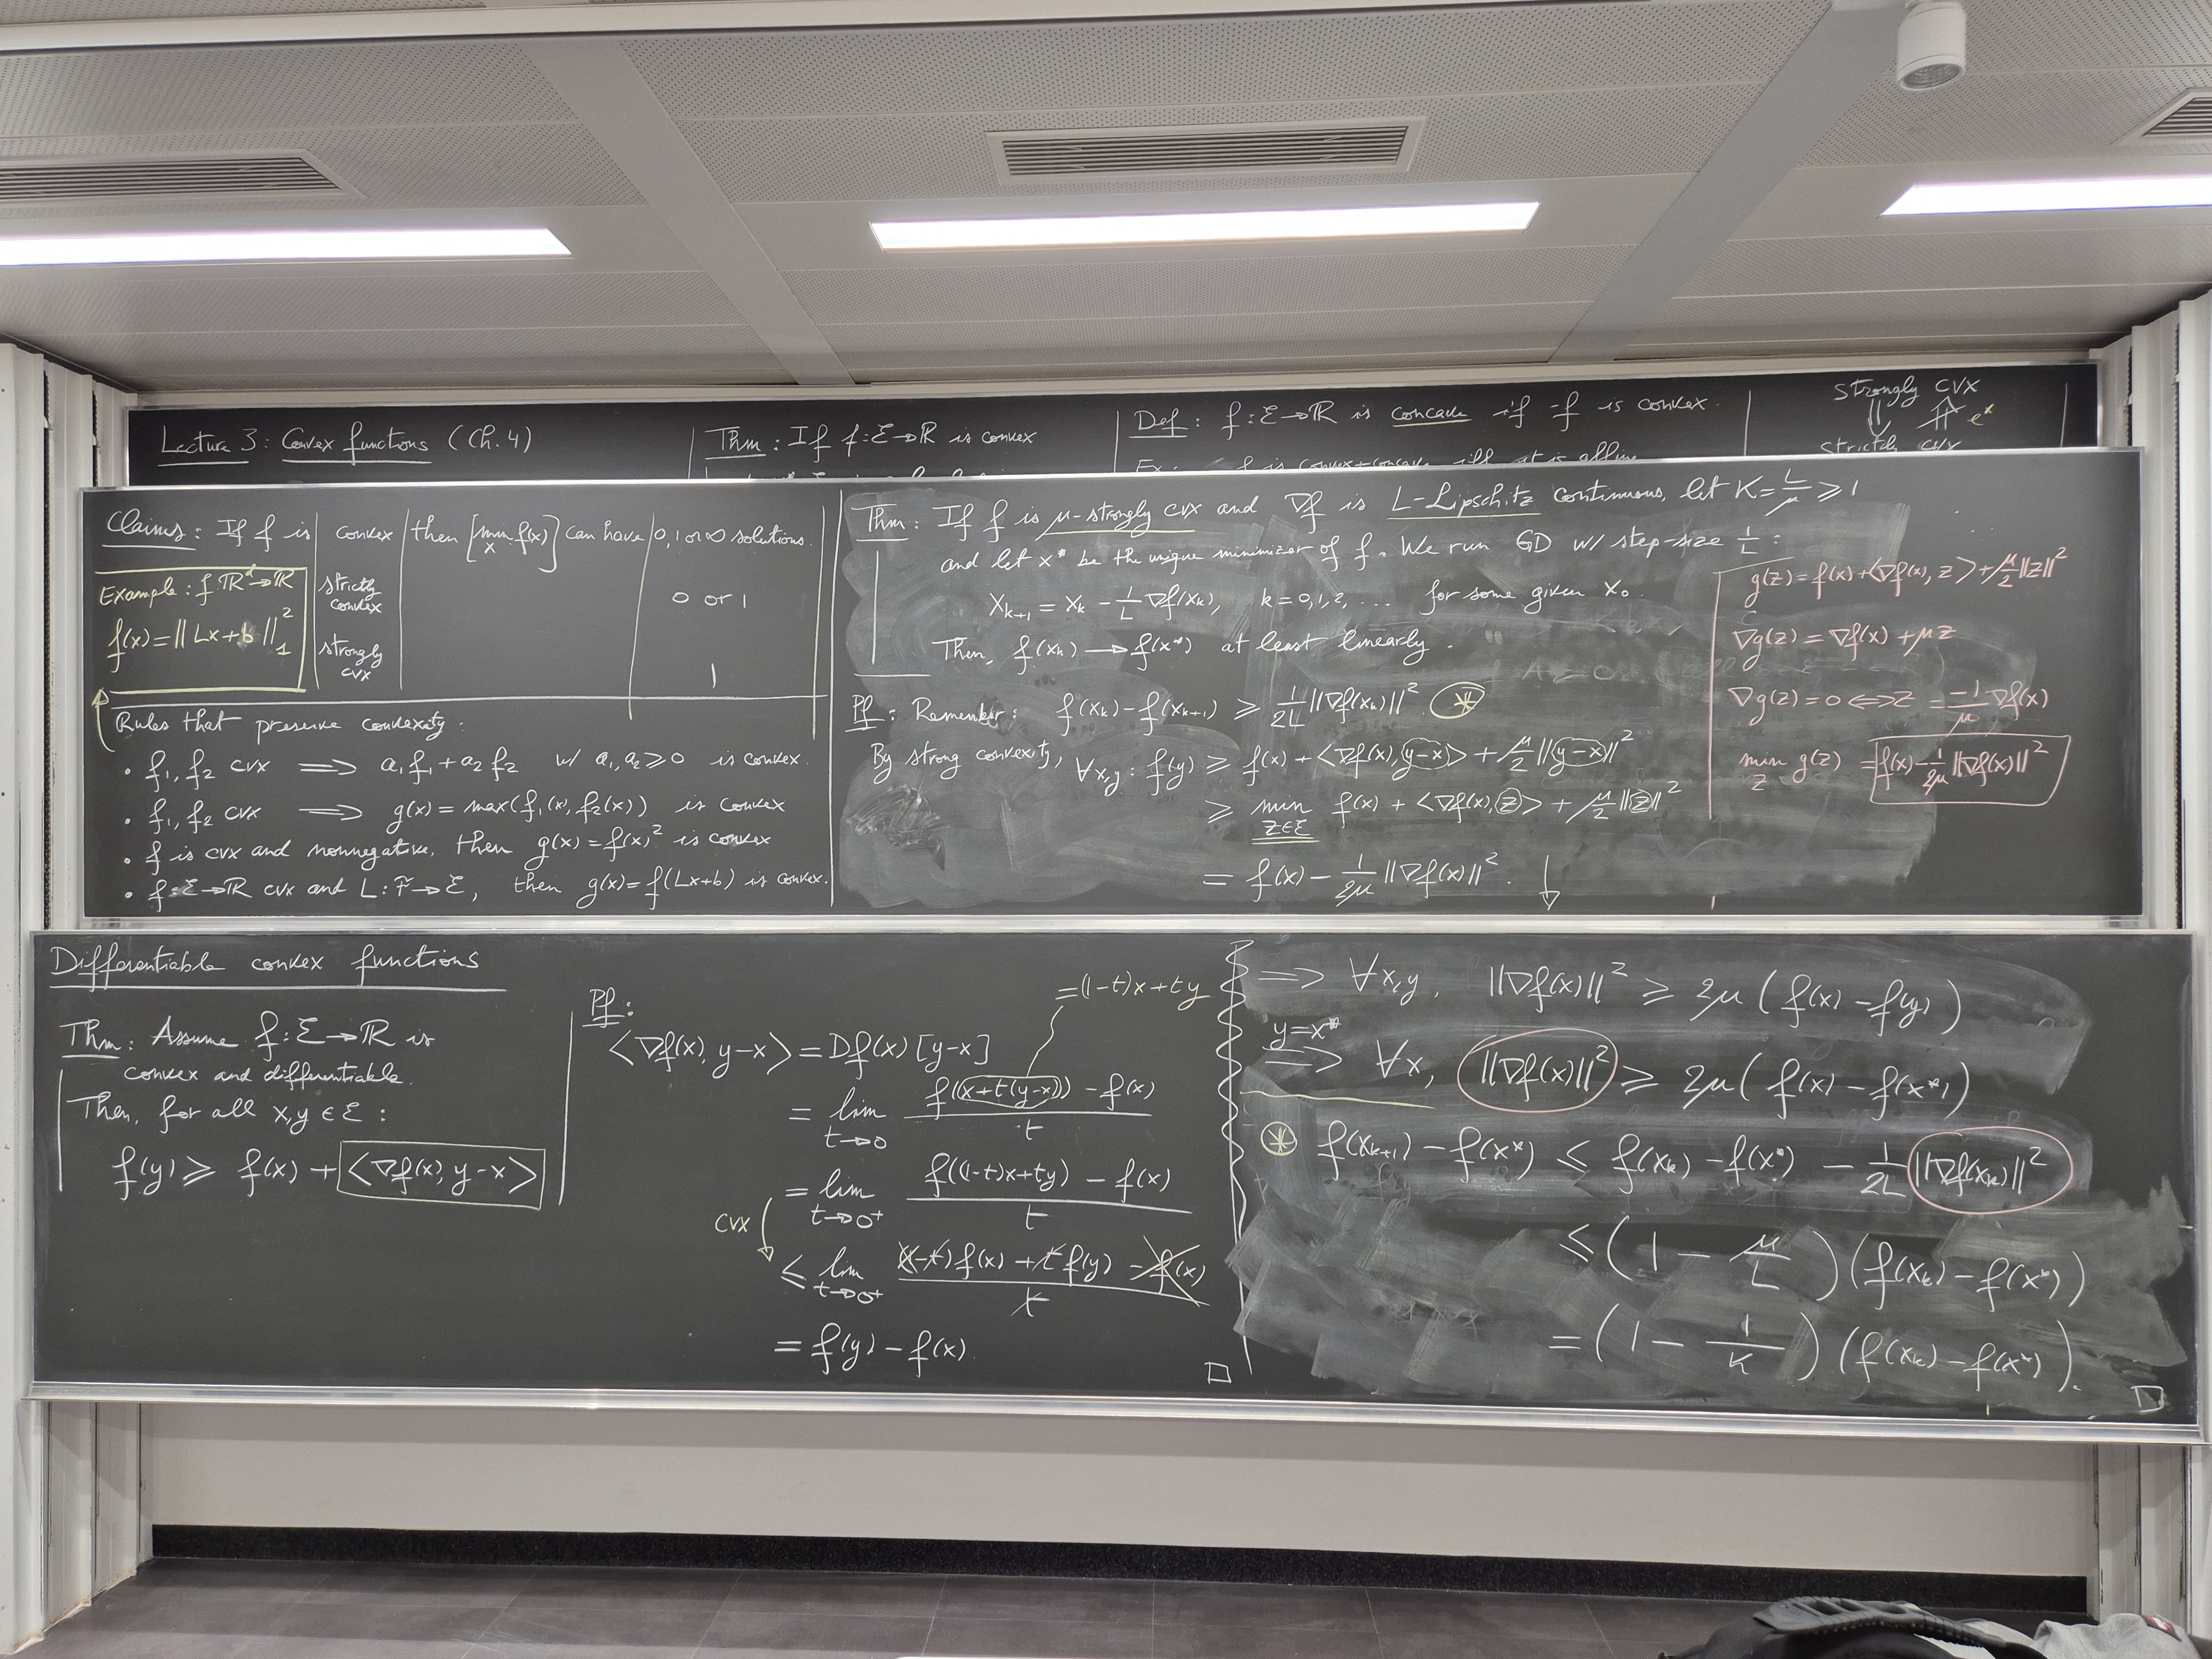 Lecture 3: Convex functions (Ch. 4)
Thm: If f: ℰ→ℝ is convex
Def: f: ℰ→ℝ is concave if -f is convex.
f is convex+concave iff it is affine
strongly cvx
⇓ ⇑ eˣ
strictly cvx
Claims: If f is | convex | then [min_x f(x)] can have | 0, 1 or ∞ solutions.
strictly convex | 0 or 1
strongly cvx | 1
Example: f: ℝᵈ→ℝ
f(x) = ||Lx+b||₁²
Rules that preserve convexity:
• f₁, f₂ cvx ⟹ a₁f₁ + a₂f₂ w/ a₁, a₂ ≥ 0 is convex.
• f₁, f₂ cvx ⟹ g(x) = max(f₁(x), f₂(x)) is convex
• f is cvx and nonnegative, then g(x) = f(x)² is convex
• f: ℰ→ℝ cvx and L: F→ℰ, then g(x) = f(Lx+b) is convex.
Thm: If f is μ-strongly cvx and ∇f is L-Lipschitz continuous, let K = L/μ ≥ 1
and let x* be the unique minimizer of f. We run GD w/ step-size 1/L:
x_{k+1} = x_k - 1/L ∇f(x_k), k = 0, 1, 2, ... for some given x₀.
Then, f(x_k) → f(x*) at least linearly.
Pf: Remember: f(x_k) - f(x_{k+1}) ≥ 1/2L ||∇f(x_k)||² ⊛
By strong convexity, ∀x,y: f(y) ≥ f(x) + <∇f(x), y-x> + μ/2 ||y-x||²
≥ min_{z∈ℰ} f(x) + <∇f(x), z> + μ/2 ||z||²
= f(x) - 1/2μ ||∇f(x)||². ↓
g(z) = f(x) + <∇f(x), z> + μ/2 ||z||²
∇g(z) = ∇f(x) + μz
∇g(z) = 0 ⟺ z = -1/μ ∇f(x)
min_z g(z) = f(x) - 1/2μ ||∇f(x)||²
Differentiable convex functions
Thm: Assume f: ℰ→ℝ is
convex and differentiable.
Then, for all x,y ∈ ℰ:
f(y) ≥ f(x) + <∇f(x), y-x>
Pf:
= (1-t)x + ty
<∇f(x), y-x> = Df(x)[y-x]
= lim_{t→0} (f((x+t(y-x))) - f(x))/t
= lim_{t→0⁺} (f((1-t)x+ty) - f(x))/t
cvx
≤ lim_{t→0⁺} ((1-t)f(x) + t f(y) - f(x))/t
= f(y) - f(x)
□
⟹ ∀x,y, ||∇f(x)||² ≥ 2μ(f(x) - f(y))
y=x*
⟹ ∀x, ||∇f(x)||² ≥ 2μ(f(x) - f(x*))
⊛ f(x_{k+1}) - f(x*) ≤ f(x_k) - f(x*) - 1/2L ||∇f(x_k)||²
≤ (1 - μ/L)(f(x_k) - f(x*))
= (1 - 1/K)(f(x_k) - f(x*)).
□